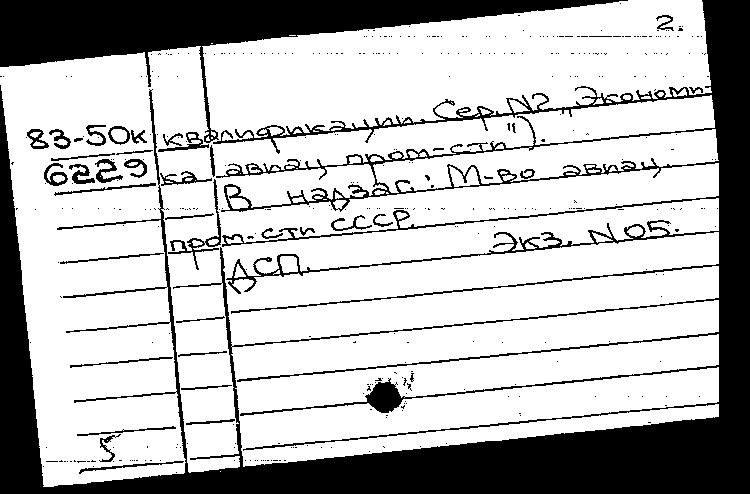 2.
83-50к квалификации. Сер. N2 „Экономи-
6229 ка авиац. пром-сти").
В надзаг.: М-во авиац.
пром-сти СССР.
Экз. N05.
ДСП.
5